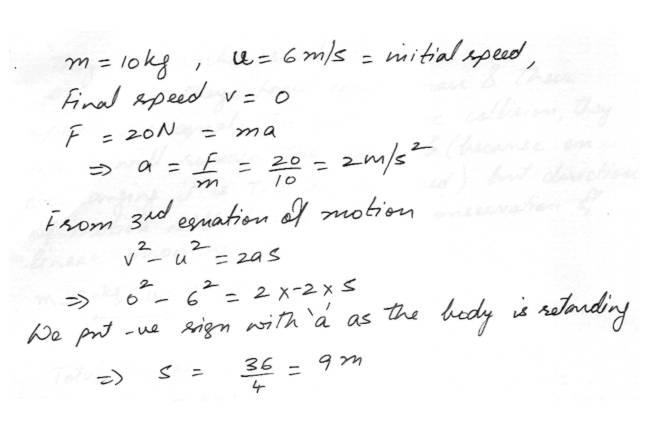 m = 10kg , u = 6 m/s = initial speed,
Final speed v = 0
F = 20N = ma
⇒ a = F/m = 20/10 = 2m/s²
From 3rd equation of motion
v² - u² = 2as
⇒ 0² - 6² = 2 x -2 x s
We put -ve sign with 'a' as the body is retarding
⇒ s = 36/4 = 9 m